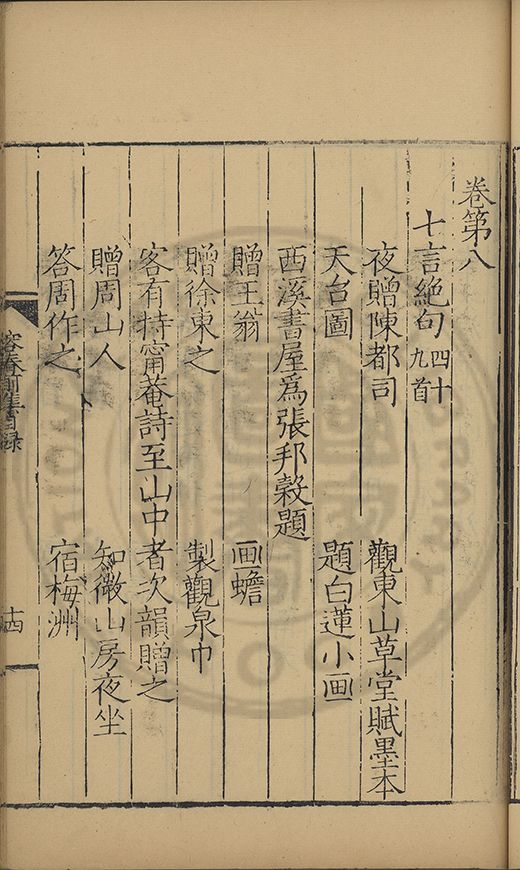 卷第八
七言絕句四十九首
夜贈陳都司 觀東山草堂賦墨本
天台圖 題白蓮小画
西溪書屋為張邦穀題
贈王翁 画蟾
贈徐東之 製觀泉巾
客有持甯菴詩至山中者次韻贈之
贈周山人 知微山房夜坐
答周作之 宿梅洲
容春前集目録 十四